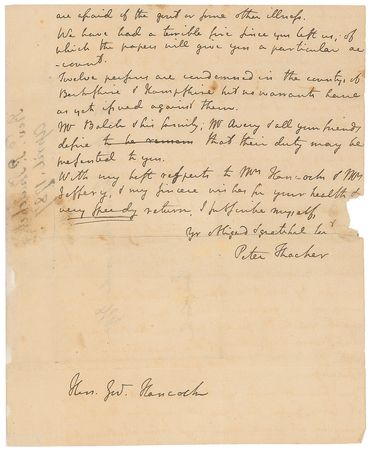 are afraid of the gout or some other illness.
We have had a terrible fire since you left us, of
which the papers will give you a particular ac
-count.
Twelve persons are condemned in the countys of
Berkshire & Hampshire but no warrants have
as yet issued against them.
Mr Balch & his family, Mr Avery & all your friends
desire to be that their duty may be
presented to you.
With my best respects to Mrs Hancock & Mrs
Jeffery, & my sincere wishes for your health &
very speedy return, I subscribe myself,
Yr obliged & grateful Servt
Peter Thacher
Hon. Gov. Hancock